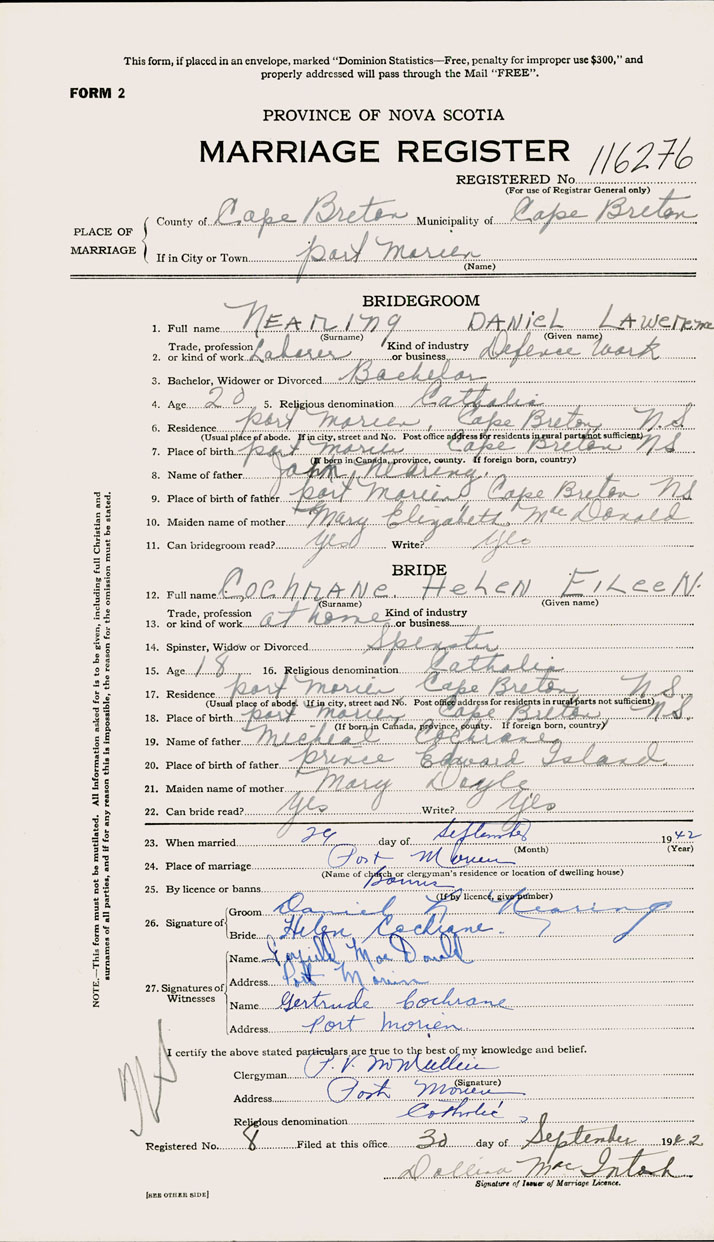 This form, if placed in an envelope, marked "Dominion Statistics—Free, penalty for improper use $300," and
properly addressed will pass through the Mail "FREE".
FORM 2
PROVINCE OF NOVA SCOTIA
MARRIAGE REGISTER
REGISTERED No. 116276
(For use of Registrar General only)
PLACE OF MARRIAGE
County of Cape Breton Municipality of Cape Breton
If in City or Town port Morien
(Name)
BRIDEGROOM
1. Full name NEARING DANIEL
(Surname) (Given name)
Trade, profession Kind of industry
2. or kind of work Laborer or business Defence Work
3. Bachelor, Widower or Divorced Bachelor
4. Age 20 5. Religious denomination Catholic
6. Residence port Morien, Cape Breton N.S.
(Usual place of abode. If in city, street and No. Post office address for residents in rural parts not sufficient)
7. Place of birth port Morien Cape Breton NS
(If born in Canada, province, county. If foreign born, country)
8. Name of father John Nearing.
9. Place of birth of father port Morien Cape Breton NS
10. Maiden name of mother Mary Elizabeth McDonald
11. Can bridegroom read? Yes Write? Yes
BRIDE
12. Full name COCHRANE. HELEN EILEEN.
(Surname) (Given name)
Trade, profession Kind of industry
13. or kind of work at home or business
14. Spinster, Widow or Divorced Spinster
15. Age 18 16. Religious denomination Catholic
17. Residence port Morien Cape Breton N.S.
(Usual place of abode. If in city, street and No. Post office address for residents in rural parts not sufficient)
18. Place of birth port Morien Cape Breton N.S.
(If born in Canada, province, county. If foreign born, country)
19. Name of father Micheal Cochrane
20. Place of birth of father prince Edward Island.
21. Maiden name of mother Mary Doyle
22. Can bride read? Yes Write? Yes
23. When married 29 day of September 1942
(Month) (Year)
24. Place of marriage Port Morien
(Name of church or clergyman's residence or location of dwelling house)
25. By licence or banns Banns
(If by licence, give number)
26. Signature of
Groom Daniel L Nearing
Bride Helen Cochrane.
27. Signatures of Witnesses
Name MacDonald
Address Port Morien
Name Gertrude Cochrane
Address Port Morien
I certify the above stated particulars are true to the best of my knowledge and belief.
Clergyman P. V. McMullin
(Signature)
Address Port Morien
Religious denomination Catholic
Registered No. 8 Filed at this office 30 day of September 1942
MacIntosh
Signature of Issuer of Marriage Licence.
[SEE OTHER SIDE]
NOTE.—This form must not be mutilated. All information asked for is to be given, including full Christian and
surnames of all parties, and if for any reason this is impossible, the reason for the omission must be stated.